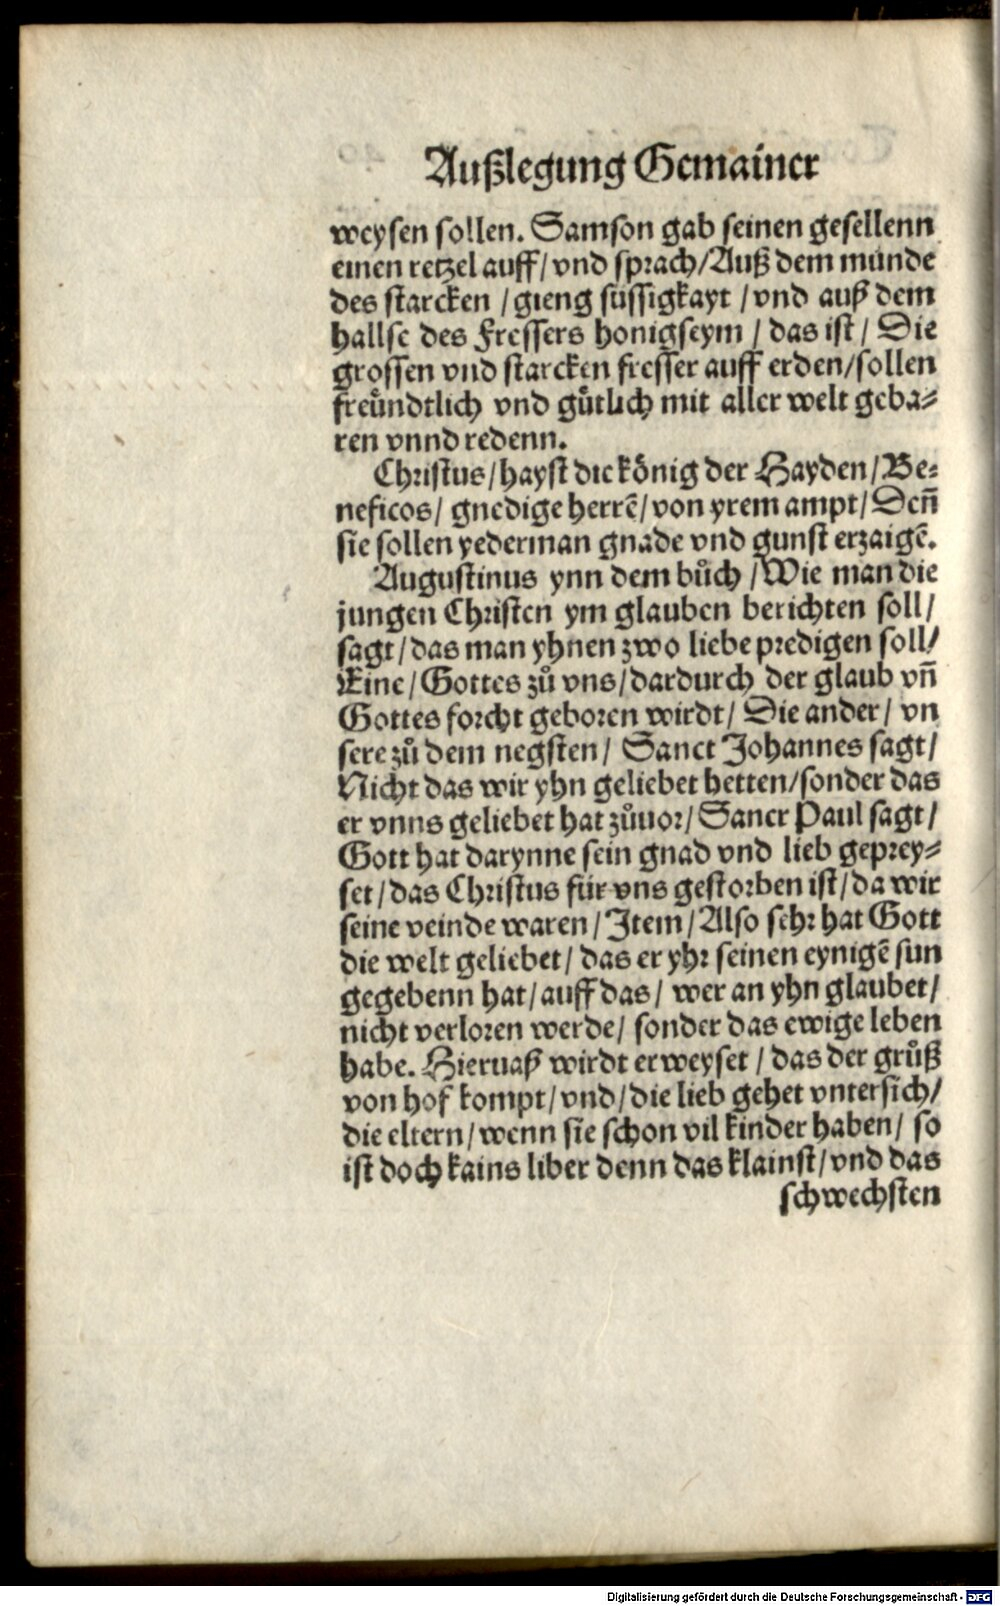 Außlegung Gemainer
weysen sollen. Samson gab seinen gesellenn
einen retzel auff/ vnd sprach/Auß dem munde
des starcken /gieng süssigkayt /vnd auß dem
hallse des fressers honigseym / das ist/ Die
grossen vnd starcken fresser auff erden/sollen
freündtlich vnd gütlich mit aller welt geba⸗
ren vnnd redenn.
Christus/hayst die könig der Hayden/Be⸗
neficos/ gnedige herrē/von yrem ampt/Den̄
sie sollen yederman gnade vnd gunst erzaigē.
Augustinus ynn dem bůch /Wie man die
jungen Christen ym glauben berichten soll/
sagt/das man yhnen zwo liebe predigen soll/
Eine/Gottes zů vns/dardurch der glaub vn̄
Gottes forcht geboren wirdt/ Die ander/ vn
sere zů dem negsten/ Sanct Johannes sagt/
Nicht das wir yhn geliebet hetten/sonder das
er vnns geliebet hat zůuor/Sancr Paul sagt/
Gott hat darynne sein gnad vnd lieb geprey⸗
set/das Christus für vns gestorben ist/da wir
seine veinde waren/Item/Also sehr hat Gott
die welt geliebet/ das er yhr seinen eynigē sun
gegebenn hat/auff das/ wer an yhn glaubet/
nicht verloren werde/ sonder das ewige leben
habe. Hieruaß wirdt erweyset /das der grůß
von hof kompt/vnd/die lieb gehet vntersich/
die eltern/wenn sie schon vil kinder haben/ so
ist doch kains liber denn das klainst/vnd das
schwechsten
Digitalisierung gefördert durch die Deutsche Forschungsgemeinschaft - DFG